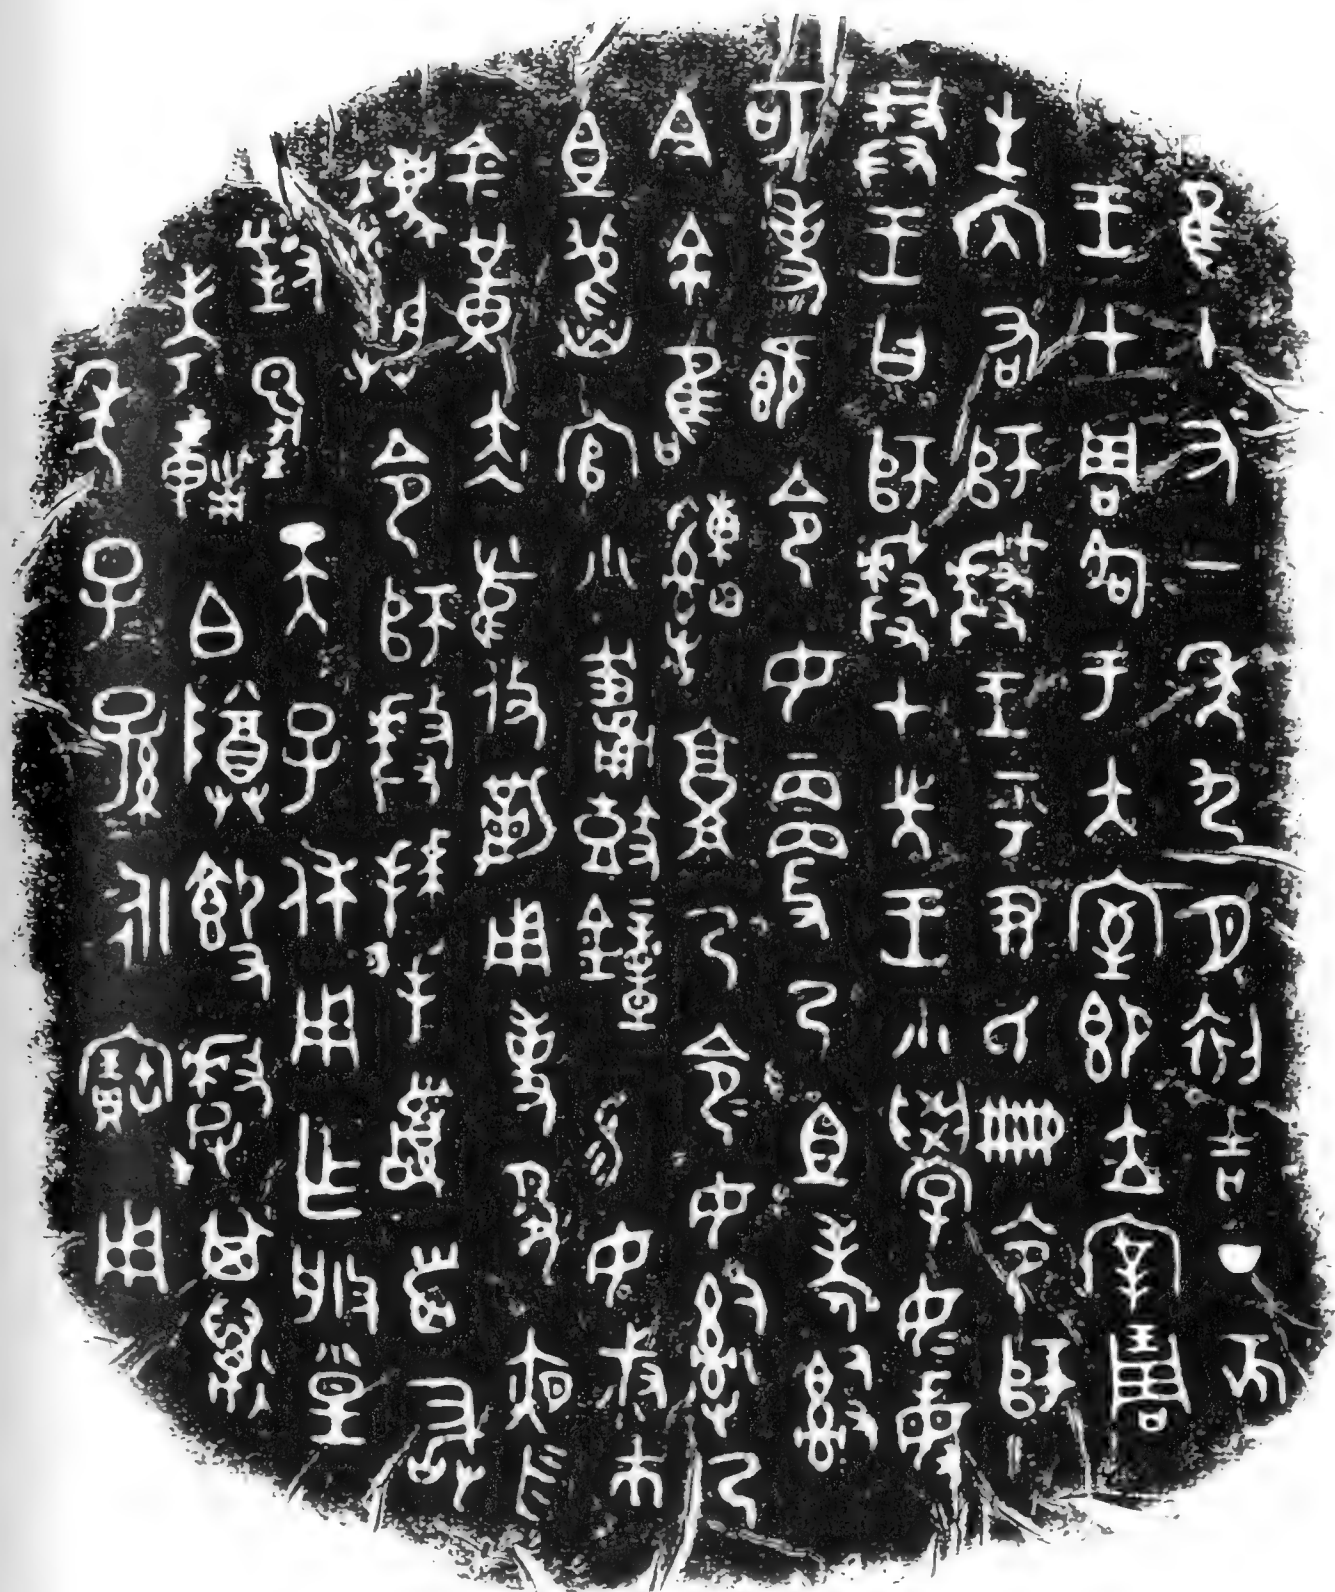 隹十又一年九月初吉丁亥
王才周各于大室即立宰琱
生內右師𠭰王乎尹氏冊令師
𠭰王曰師𠭰才先王小學女敏
可事既令女更乃且考𤔲
今余隹𤕌𩫖乃令令女𤔲乃
且舊官小輔鼓鐘易女叔市
金黃赤舄攸勒用事敬夙夜
勿灋朕令師𠭰拜手𩒨首敢
對揚天子休用乍朕皇
考輔白尊𣪘𠭰其萬
年子孫永寶用